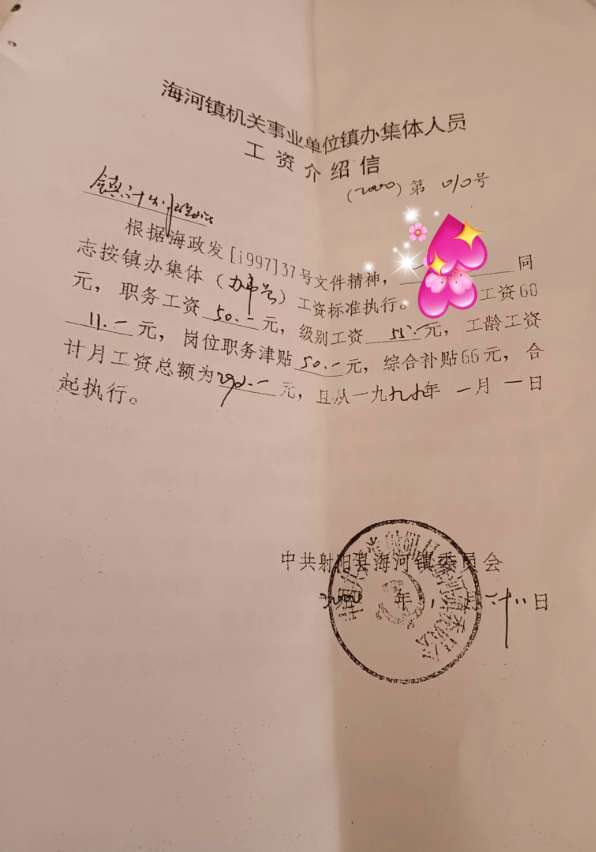 海河镇机关事业单位镇办集体人员
工资介绍信
(2000)第 010号
根据海政发[1997]37号文件精神, 同
志按镇办集体()工资标准执行。 工资60
元, 职务工资 50.- 元, 级别工资 55.- 元, 工龄工资
11.- 元, 岗位职务津贴 50.- 元, 综合补贴66元, 合
计月工资总额为 元, 且从一九九九年 一月 一日
起执行。
中共射阳县海河镇委员会
年 月 日